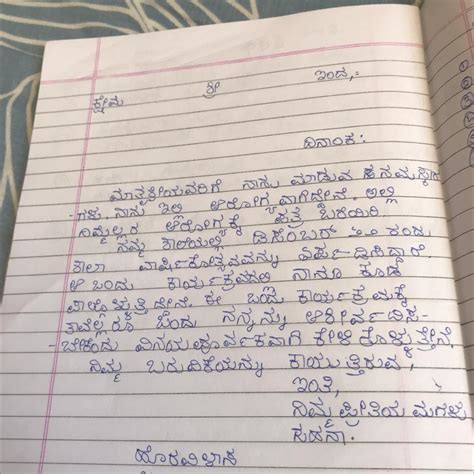 ಕ್ಷೇಮ ಶ್ರೀ ಇಂದ,=
ದಿನಾಂಕ:
ನಾನು ಮಾಡುವ
-ಗಳು. ನಾನು ಇಲ್ಲಿ ಆರೋಗ್ಯವಾಗಿದ್ದೇನೆ. ಅಲ್ಲಿ
ನಿಮ್ಮೆಲ್ಲರ ಆರೋಗ್ಯಕ್ಕೆ ಪತ್ರ ಬರೆಯಿರಿ.
ನಮ್ಮ ಶಾಲೆಯಲ್ಲಿ ಡಿಸೆಂಬರ್ ರಂದು
ಶಾಲಾ ವಾರ್ಷಿಕೋತ್ಸವವನ್ನು ಏರ್ಪಡಿಸಿದ್ದಾರೆ.
ಆ ಒಂದು ಕಾರ್ಯಕ್ರಮದಲ್ಲಿ ನಾನೂ ಕೂಡ
ಪಾಲ್ಗೊಳ್ಳುತ್ತಿದ್ದೇನೆ. ಈ ಒಂದು ಕಾರ್ಯಕ್ರಮಕ್ಕೆ
ತಾವೆಲ್ಲರೂ ಬಂದು ನನ್ನನ್ನು ಆಶೀರ್ವದಿಸ-
-ಬೇಕೆಂದು ವಿನಯಪೂರ್ವಕವಾಗಿ ಕೇಳಿಕೊಳ್ಳುತ್ತೇನೆ.
ನಿಮ್ಮ ಬರುವಿಕೆಯನ್ನು ಕಾಯುತ್ತಿರುವ,
ಇಂತಿ,
ನಿಮ್ಮ ಪ್ರೀತಿಯ ಮಗಳು
ಹೊರವಿಳಾಸ